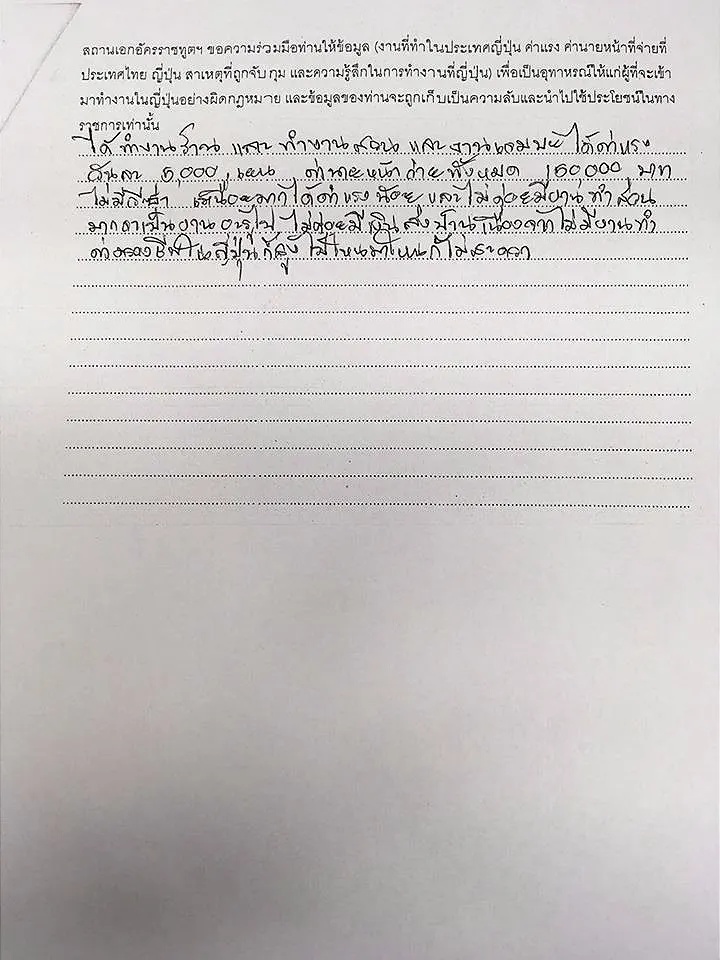 สถานเอกอัครราชทูตฯ ขอความร่วมมือท่านให้ข้อมูล (งานที่ทำในประเทศญี่ปุ่น ค่าแรง ค่านายหน้าที่จ่ายที่
ประเทศไทย ญี่ปุ่น สาเหตุที่ถูกจับกุม และความรู้สึกในการทำงานที่ญี่ปุ่น) เพื่อเป็นอุทาหรณ์ให้แก่ผู้ที่จะเข้า
มาทำงานในญี่ปุ่นอย่างผิดกฎหมาย และข้อมูลของท่านจะถูกเก็บเป็นความลับและนำไปใช้ประโยชน์ในทาง
ราชการเท่านั้น
ได้ทำงานร้าน และ ทำงานสวน และ งานแม่บ้าน ได้ค่าแรง
วันละ 5,000 เยน ค่านายหน้าจ่ายทั้งหมด 150,000 บาท
ไม่มี เหนื่อยมากได้ค่าแรงน้อย และไม่ค่อยมีงานทำ ส่วน
มากจะเป็นงาน ไม่ค่อยมีเงินส่งบ้านเนื่องจากไม่มีงานทำ
ค่าครองชีพในญี่ปุ่นก็สูง ไปไหนมาไหนก็ไม่สะดวก